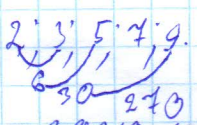 2 · 3 · 5 · 7 · 9
6 30 270